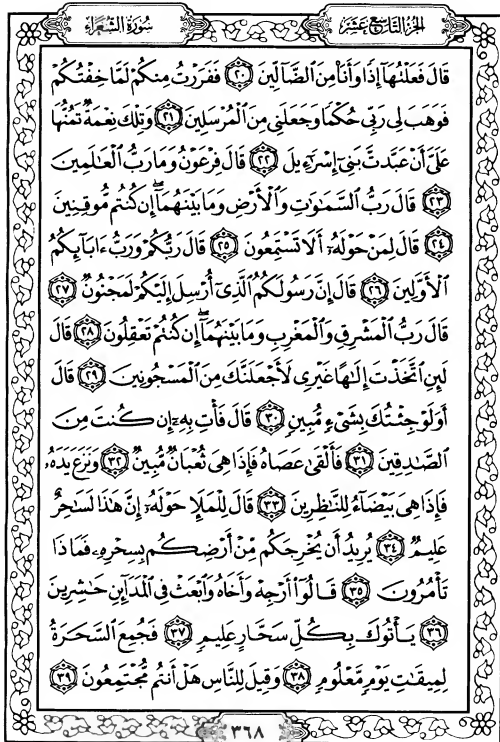 سُورَةُ الشُّعَرَاءِ
الجُزْءُ التَّاسِعَ عَشَرَ
قَالَ فَعَلْتُهَآ إِذًا وَأَنَا۠ مِنَ ٱلضَّآلِّينَ ٢٠ فَفَرَرْتُ مِنكُمْ لَمَّا خِفْتُكُمْ
فَوَهَبَ لِى رَبِّى حُكْمًا وَجَعَلَنِى مِنَ ٱلْمُرْسَلِينَ ٢١ وَتِلْكَ نِعْمَةٌ تَمُنُّهَا
عَلَىَّ أَنْ عَبَّدتَّ بَنِىٓ إِسْرَٰٓءِيلَ ٢٢ قَالَ فِرْعَوْنُ وَمَا رَبُّ ٱلْعَٰلَمِينَ
٢٣ قَالَ رَبُّ ٱلسَّمَٰوَٰتِ وَٱلْأَرْضِ وَمَا بَيْنَهُمَآ ۖ إِن كُنتُم مُّوقِنِينَ
٢٤ قَالَ لِمَنْ حَوْلَهُۥٓ أَلَا تَسْتَمِعُونَ ٢٥ قَالَ رَبُّكُمْ وَرَبُّ ءَابَآئِكُمُ
ٱلْأَوَّلِينَ ٢٦ قَالَ إِنَّ رَسُولَكُمُ ٱلَّذِىٓ أُرْسِلَ إِلَيْكُمْ لَمَجْنُونٌ ٢٧
قَالَ رَبُّ ٱلْمَشْرِقِ وَٱلْمَغْرِبِ وَمَا بَيْنَهُمَآ ۖ إِن كُنتُمْ تَعْقِلُونَ ٢٨ قَالَ
لَئِنِ ٱتَّخَذْتَ إِلَٰهًا غَيْرِى لَأَجْعَلَنَّكَ مِنَ ٱلْمَسْجُونِينَ ٢٩ قَالَ
أَوَلَوْ جِئْتُكَ بِشَىْءٍ مُّبِينٍ ٣٠ قَالَ فَأْتِ بِهِۦٓ إِن كُنتَ مِنَ
ٱلصَّٰدِقِينَ ٣١ فَأَلْقَىٰ عَصَاهُ فَإِذَا هِىَ ثُعْبَانٌ مُّبِينٌ ٣٢ وَنَزَعَ يَدَهُۥ
فَإِذَا هِىَ بَيْضَآءُ لِلنَّٰظِرِينَ ٣٣ قَالَ لِلْمَلَإِ حَوْلَهُۥٓ إِنَّ هَٰذَا لَسَٰحِرٌ
عَلِيمٌ ٣٤ يُرِيدُ أَن يُخْرِجَكُم مِّنْ أَرْضِكُم بِسِحْرِهِۦ فَمَاذَا
تَأْمُرُونَ ٣٥ قَالُوٓا۟ أَرْجِهْ وَأَخَاهُ وَٱبْعَثْ فِى ٱلْمَدَآئِنِ حَٰشِرِينَ
٣٦ يَأْتُوكَ بِكُلِّ سَحَّارٍ عَلِيمٍ ٣٧ فَجُمِعَ ٱلسَّحَرَةُ
لِمِيقَٰتِ يَوْمٍ مَّعْلُومٍ ٣٨ وَقِيلَ لِلنَّاسِ هَلْ أَنتُم مُّجْتَمِعُونَ ٣٩
٣٦٨